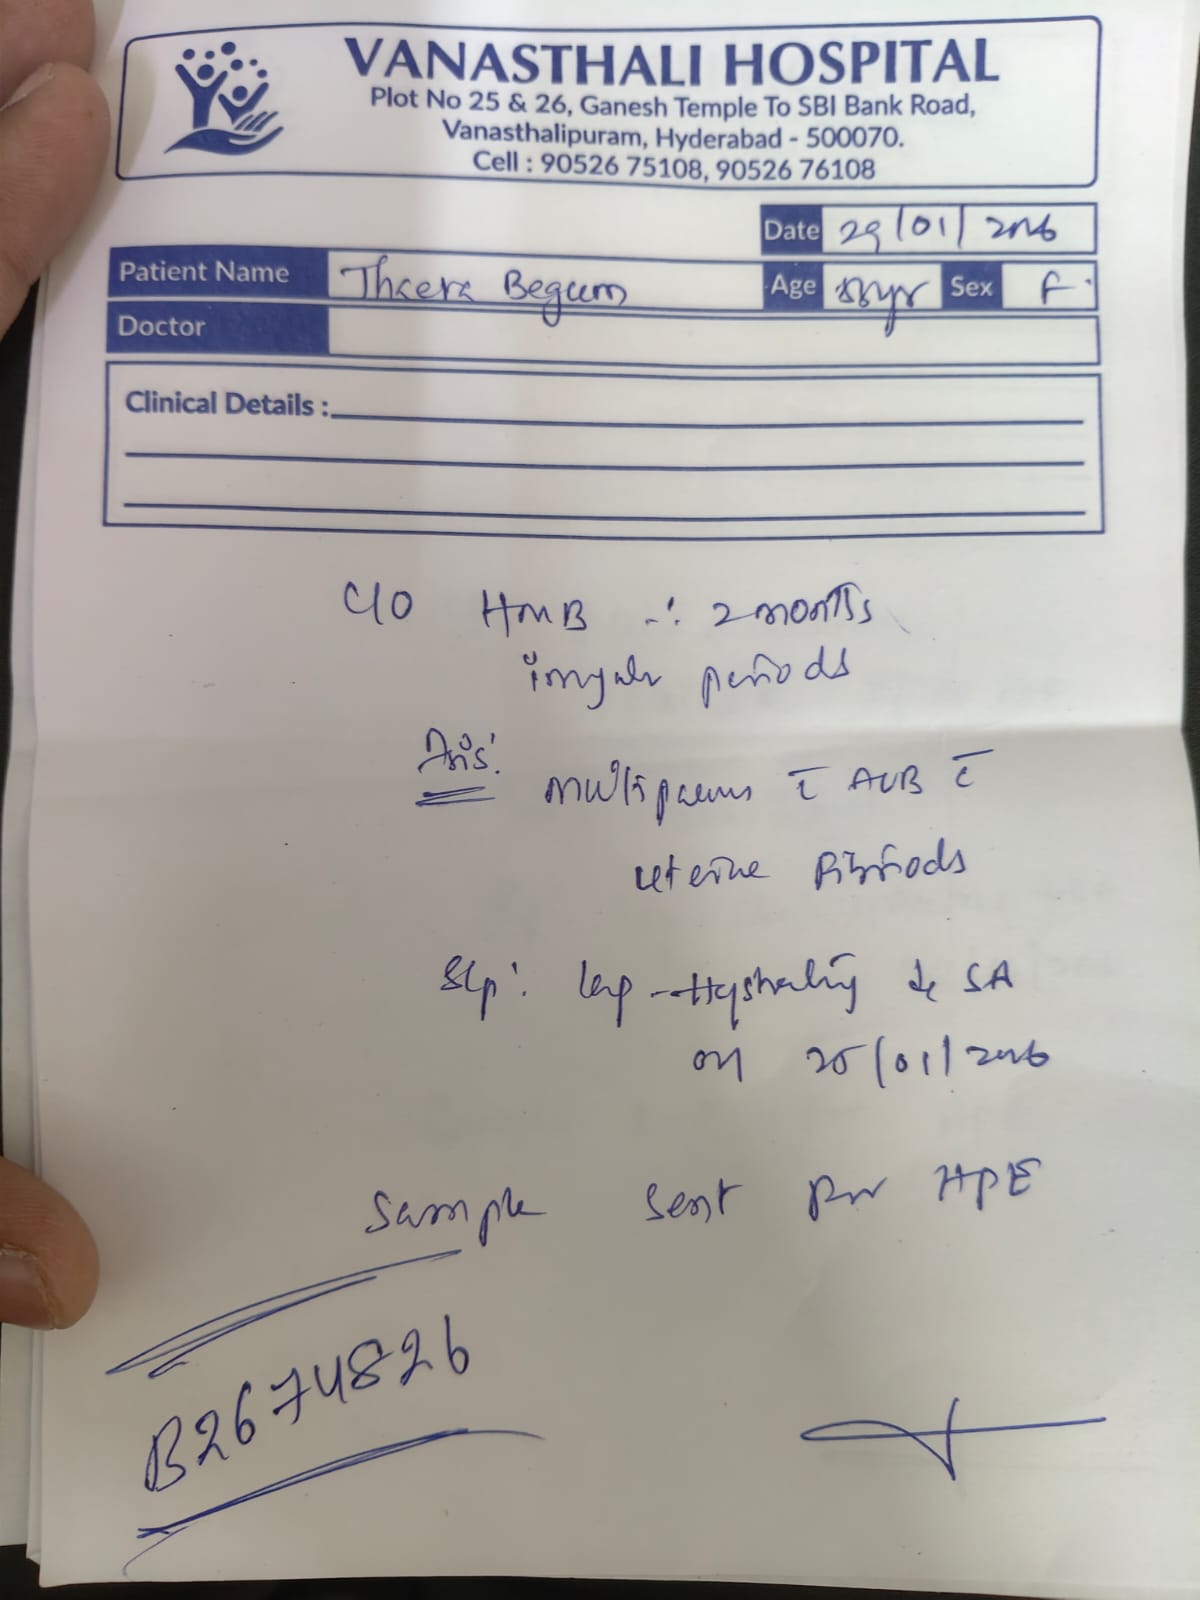 VANASTHALI HOSPITAL
Plot No 25 & 26, Ganesh Temple To SBI Bank Road,
Vanasthalipuram, Hyderabad - 500070.
Cell : 90526 75108, 90526 76108
Date 29/01/2026
Patient Name Thaera Begum Age Sex F
Doctor
Clinical Details :
C/O HMB ∴ 2 months
irregular periods
multiparous c̄ AUB c̄
uterine fibroids
Lap - SA
on 25/01/2026
Sample sent for HPE
B2674826